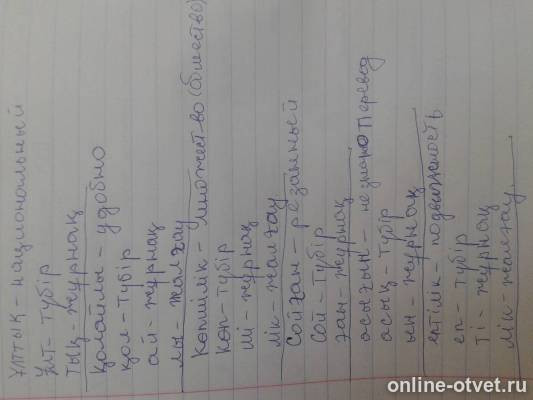 ұлттық - национальный
ұлт - түбір
тық - жұрнақ
қолайлы - удобно
қол - түбір
ай - жұрнақ
лы - жалғау
Көпшілік - множество (общество)
көп - түбір
ші - жұрнақ
лік - жалғау
Сойған - резанный
сой - түбір
ған - жұрнақ
асығын - не знаю перевод
асық - түбір
ын - жұрнақ
ептілік - подвижность
еп - түбір
ті - жұрнақ
лік - жалғау.
online-otvet.ru